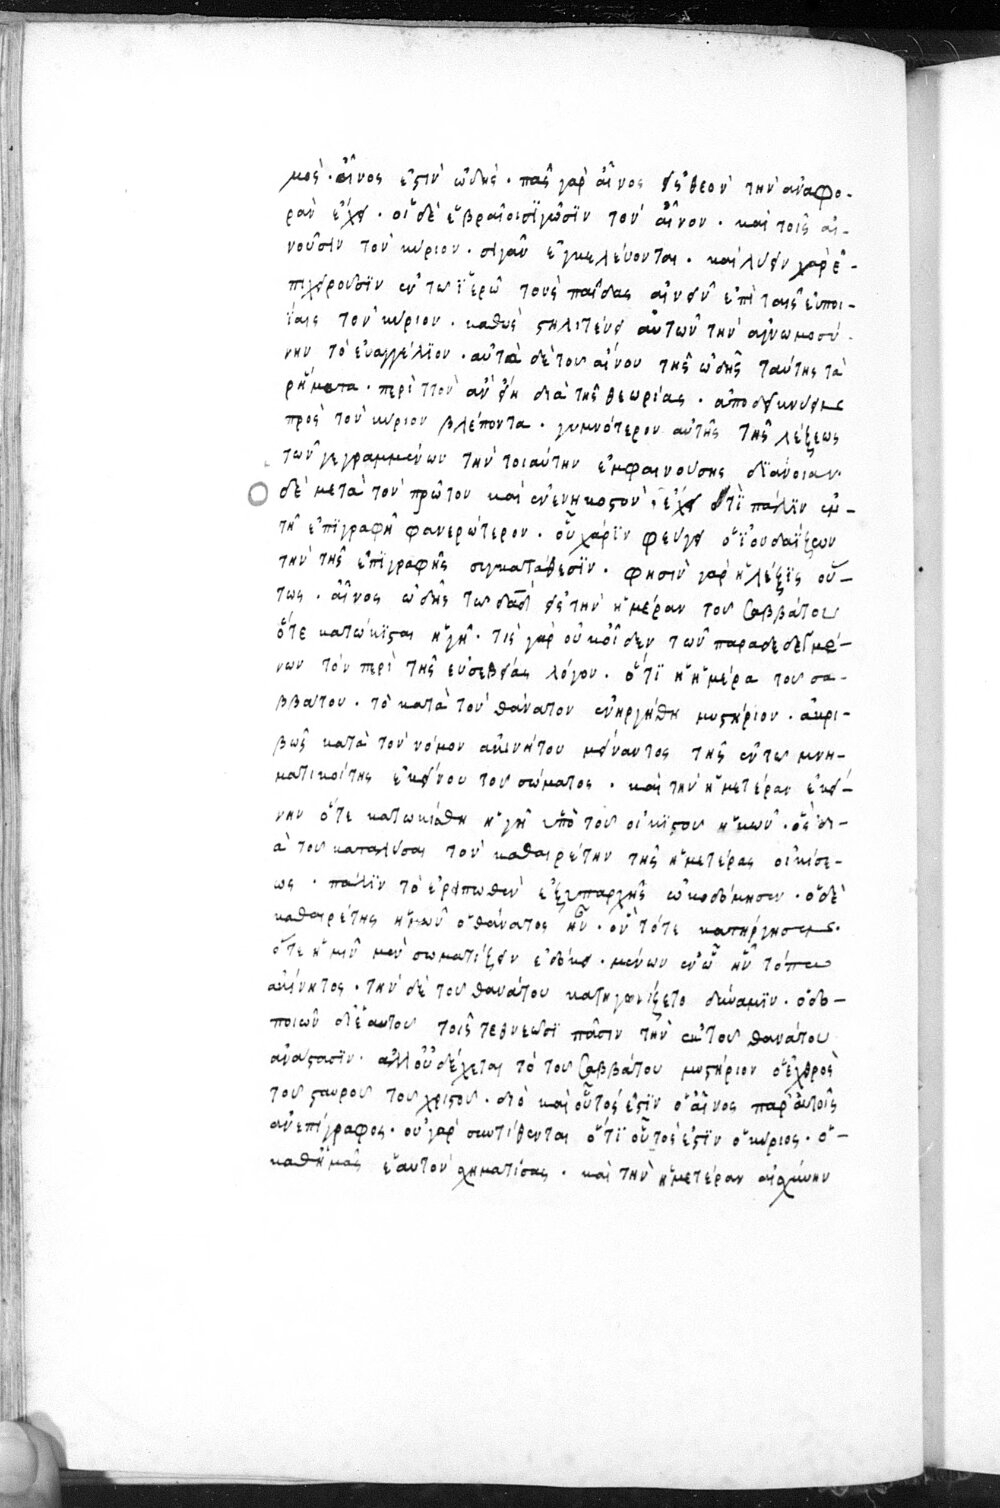 μος· αἶνος ἐστὶν ὠδῆς· πᾶς γὰρ αἶνος εἰς θεὸν τὴν ἀναφο-
ρὰν ἔχει· οἱ δὲ ἑβραῖοι σιγῶσιν τὸν αἶνον· καὶ τοῖς αἰ-
νοῦσιν τὸν κύριον· σιγᾶν ἐγκελεύονται· κωλύειν γὰρ ἐ-
πιχειροῦσιν ἐν τῶ ἱερῶ τοὺς παῖδας αἰνεῖν ἐπὶ ταῖς εὐποι-
ΐαις τὸν κύριον· καθὼς στηλιτεύει αὐτῶν τὴν ἀγνωμοσύ-
νην τὸ εὐαγγέλιον· αὐτὰ δὲ τοῦ αἴνου τῆς ὠδῆς ταύτης τὰ
ῥήματα· περιττὸν ἂν εἴη διὰ τῆς θεωρίας· ἀποδεικνύειν
πρὸς τὸν κύριον βλέποντα· γυμνότερον αὐτῆς τῆς λέξεως
τῶν γεγραμμένων τὴν τοιαύτην ἐμφαινούσης διάνοιαν·
Ο δὲ μετὰ τὸν πρῶτον καὶ ἐνενηκοστὸν· ἔχει τὶ πάλιν ἐν
τῆ ἐπιγραφῆ φανερώτερον· οὗ χάριν φεύγει ὁ ἰουδαΐζων
τὴν τῆς ἐπιγραφῆς συγκατάθεσιν· φησὶν γὰρ ἡ λέξις οὕ-
τως· αἶνος ὠδῆς τῶ δαδ εἰς τὴν ἡμέραν τοῦ σαββάτου
ὅτε κατώκισται ἡ γῆ· τίς γὰρ οὐκ οἶδεν τῶν παραδεδεγμέ-
νων τὸν περὶ τῆς εὐσεβείας λόγον· ὅτι ἡ ἡμέρα τοῦ σα-
ββάτου· τὸ κατὰ τὸν θάνατον ἐνηργήθη μυστήριον· ἀκρι-
βῶς κατὰ τὸν νόμον ἀκινήτου μείναντος τῆς ἐν τῶ μνη-
ματι κοίτης ἐκείνου τοῦ σώματος· καὶ τὴν ἡμετέραν ἐκεί-
νην ὅτε κατωκίσθη ἡ γῆ ὑπὸ τοῦ οἰκιστοῦ ἡμῶν· ὃς δι-
ὰ τοῦ καταλῦσαι τὸν καθαιρέτην τῆς ἡμετέρας οἰκίσε-
ως· πάλιν τὸ ἐρειπωθὲν ἐξυπαρχῆς ὠκοδόμησεν· ὁ δὲ
καθαιρέτης ἡμῶν ὁ θάνατος ἦν· ὃν τότε κατήργησεν·
ὅτε ἡμῖν μὲν σωματίζειν ἐδόκει· μένων ἐν ὧ ἦν τόπω
ἀκίνητος· τὴν δὲ τοῦ θανάτου κατηγωνίζετο δύναμιν· ὁδο-
ποιῶν δι' ἑαυτοῦ τοῖς τεθνεῶσι πᾶσιν τὴν ἐκ τοῦ θανάτου
ἀνάστασιν· ἀλλ' οὐ δέχεται τὸ τοῦ σαββάτου μυστήριον ὁ ἐχθρὸς
τοῦ σταυροῦ τοῦ χριστοῦ· διὸ καὶ οὗτός ἐστιν ὁ αἶνος παρ' αὐτοῖς
ἀνεπίγραφος· οὐ γὰρ συντίθενται ὅτι οὗτός ἐστιν ὁ κύριος· ὁ-
καθ' ἡμᾶς ἑαυτὸν σχηματίσας· καὶ τὴν ἡμετέραν αἰσχύνην